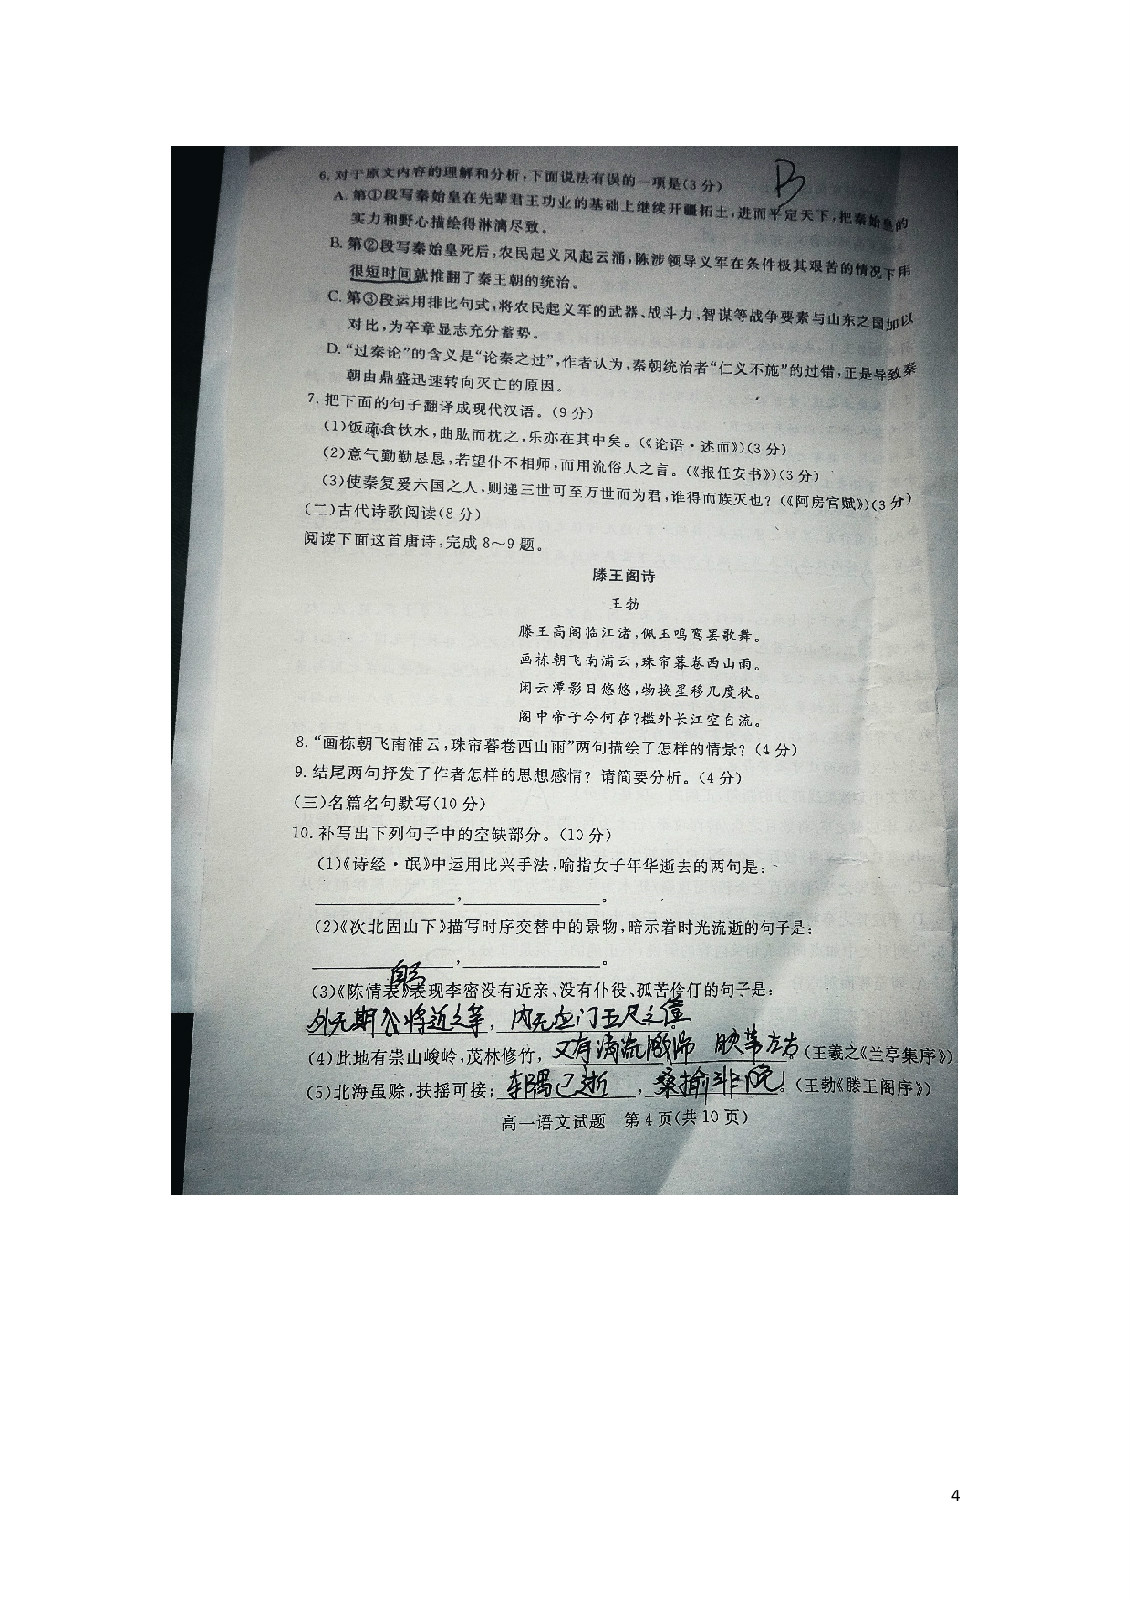 6. 对于原文内容的理解和分析,下面说法有误的一项是(3分)
B
A. 第①段写秦始皇在先辈君王功业的基础上继续开疆拓土,进而平定天下,把秦始皇的
实力和野心描绘得淋漓尽致。
B. 第②段写秦始皇死后,农民起义风起云涌,陈涉领导义军在条件极其艰苦的情况下用
很短时间就推翻了秦王朝的统治。
C. 第③段运用排比句式,将农民起义军的武器、战斗力、智谋等战争要素与山东之国加以
对比,为卒章显志充分蓄势。
D. “过秦论”的含义是“论秦之过”,作者认为,秦朝统治者“仁义不施”的过错,正是导致秦
朝由鼎盛迅速转向灭亡的原因。
7. 把下面的句子翻译成现代汉语。(9分)
(1)饭疏食饮水,曲肱而枕之,乐亦在其中矣。(《论语·述而》)(3分)
(2)意气勤勤恳恳,若望仆不相师,而用流俗人之言。(《报任安书》)(3分)
(3)使秦复爱六国之人,则递三世可至万世而为君,谁得而族灭也?(《阿房宫赋》)(3分)
(二)古代诗歌阅读(8分)
阅读下面这首唐诗,完成8~9题。
滕王阁诗
王勃
滕王高阁临江渚,佩玉鸣鸾罢歌舞。
画栋朝飞南浦云,珠帘暮卷西山雨。
闲云潭影日悠悠,物换星移几度秋。
阁中帝子今何在?槛外长江空自流。
8. “画栋朝飞南浦云,珠帘暮卷西山雨”两句描绘了怎样的情景?(4分)
9. 结尾两句抒发了作者怎样的思想感情?请简要分析。(4分)
(三)名篇名句默写(10分)
10. 补写出下列句子中的空缺部分。(10分)
(1)《诗经·氓》中运用比兴手法,喻指女子年华逝去的两句是:
,。
(2)《次北固山下》描写时序交替中的景物,暗示着时光流逝的句子是:
,。
(3)《陈情表》表现李密没有近亲、没有仆役、孤苦伶仃的句子是:
外无期 将近之 ,内无应门五尺之僮
(4)此地有崇山峻岭,茂林修竹,又有清流激湍 映带左右。(王羲之《兰亭集序》)
(5)北海虽赊,扶摇可接;东隅已逝,桑榆非晚。(王勃《滕王阁序》)
高一语文试题 第4页(共10页)
4